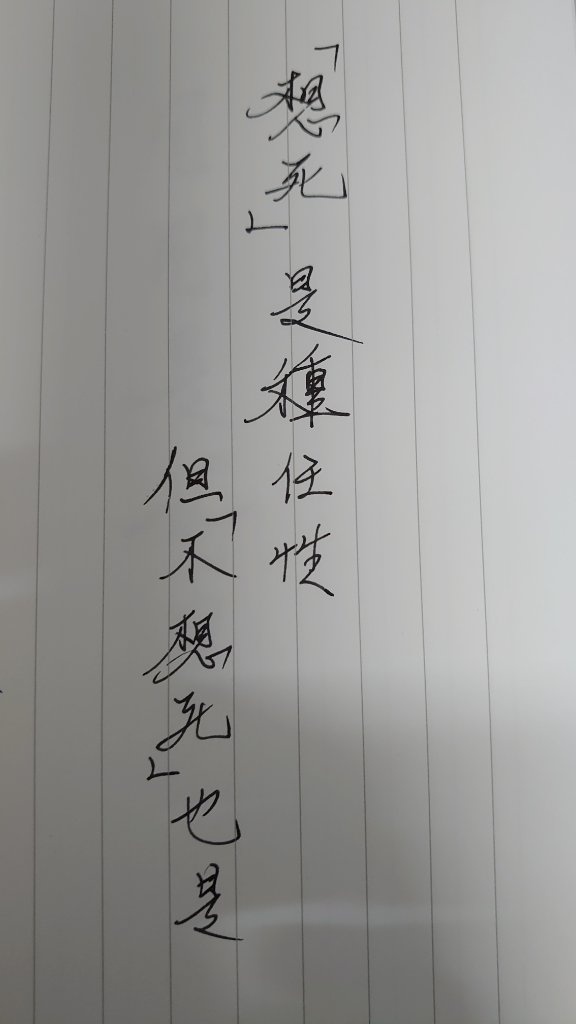 「想死」是種任性
但「不想死」也是